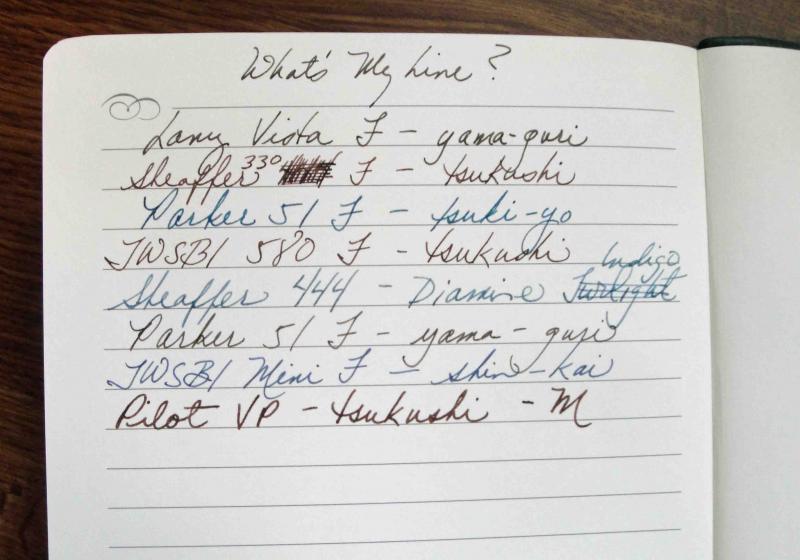 What's My Line?
Lamy Vista F - yama-guri
Sheaffer 330 F - tsukushi
Parker 51 F - tsuki-yo
TWSBI 580 F - tsukushi
Indigo
Sheaffer 444 - Diamine Twilight
Parker 51 F - yama-guri
TWSBI Mini F - shin-kai
Pilot VP - tsukushi - M